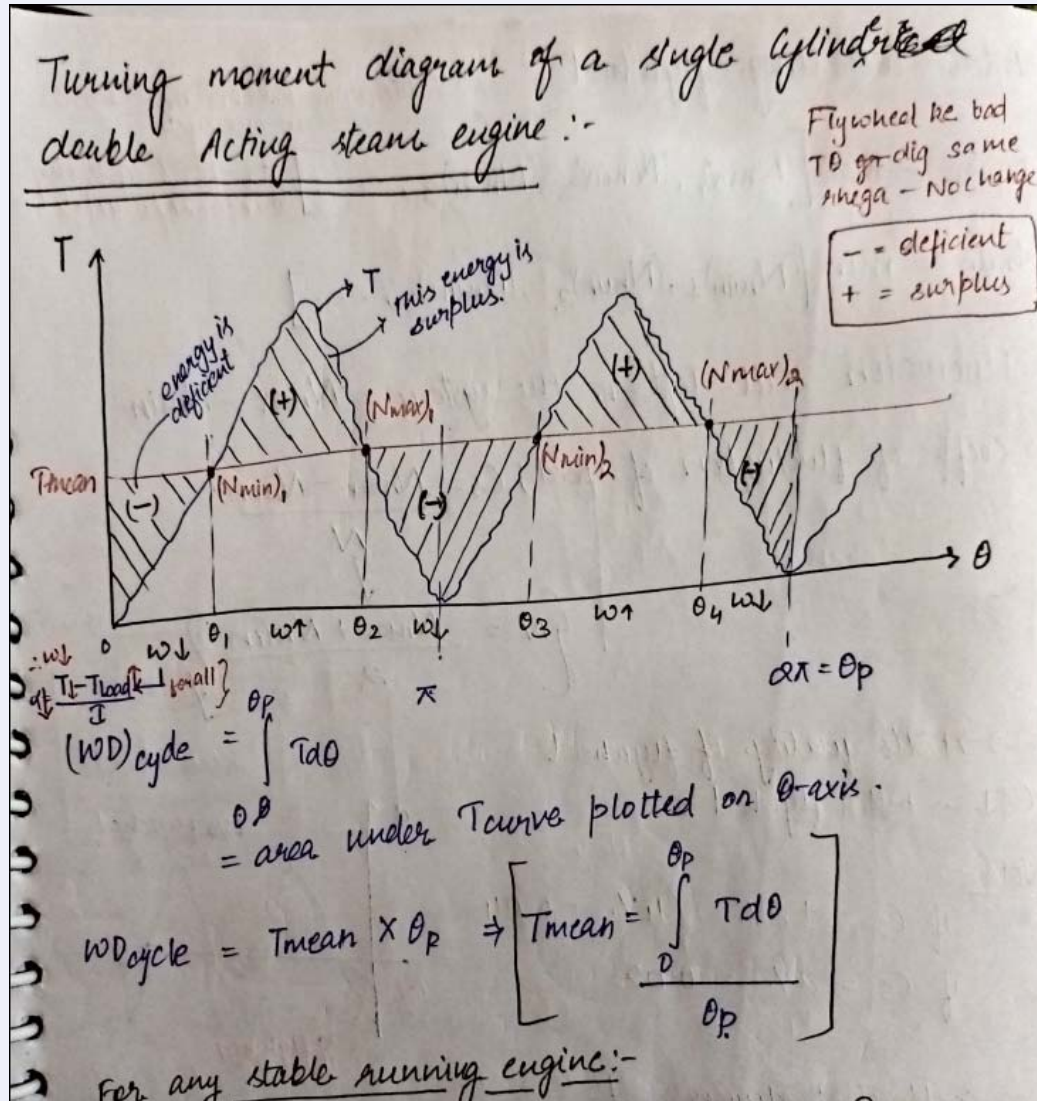 Turning moment diagram of a single Cylinder
double Acting steam engine :-
Flywheel ke bad
Tθ dig same
rhega - No change
- = deficient
+ = surplus
T
T
This energy is
surplus.
energy is
deficient
(+)
(+)
(Nmax)1
(Nmax)2
Tmean
(-)
(Nmin)1
(-)
(Nmin)2
(-)
θ
0
ω↓
θ1
ω↑
θ2
ω↓
θ3
ω↑
θ4
ω↓
∴ω↓
α↓ = T↓-Tload / I for all}
π
2π = θp
(WD)cycle = ∫ Tdθ
θp
0
= area under Tcurve plotted on θ-axis.
WDcycle = Tmean × θp ⇒ [Tmean = ∫ Tdθ
θp
0
θp
For any stable running engine:-